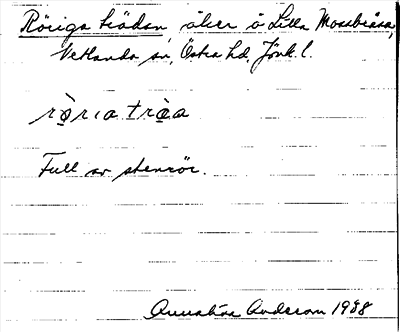 Röriga träden, åker å Lilla Mossbråna,
Vetlanda sn, Östra hd, Jönk. l.
rò̤rıa trà̤a
Full av stenrör.
Annalisa Anderson 1988